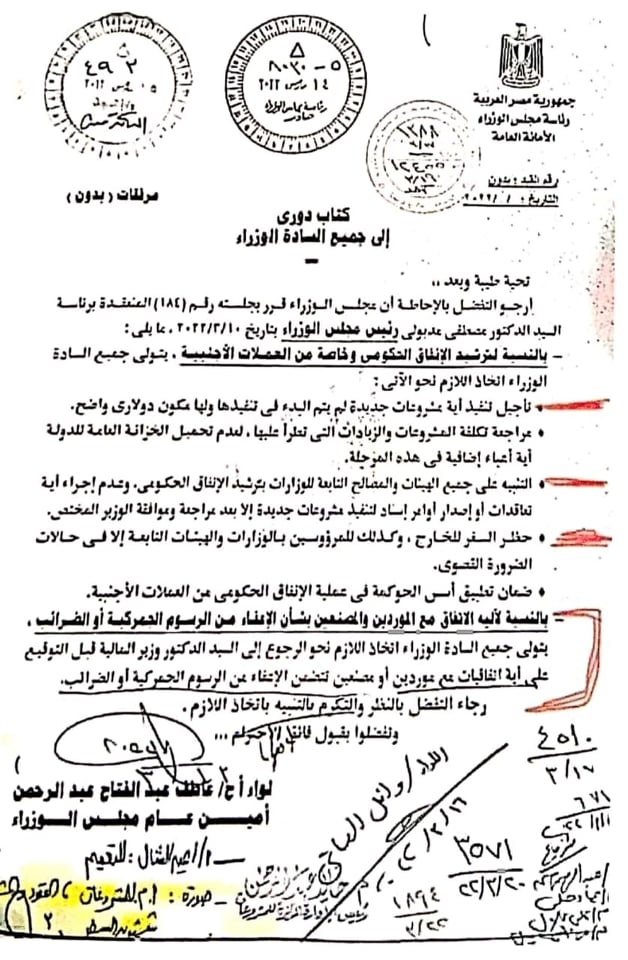 جمهورية مصر العربية
رئاسة مجلس الوزراء
الأمانة العامة
رقم القيد : بدون
التاريخ : / /٢٠٢٢
٥
٤٩٢
٥ - ٨٠٣٠
١٤ مارس ٢٠٢٢
رئاسة مجلس الوزراء
صادر
١٣٨٨
مرفقات ( بدون )
كتاب دورى
إلى جميع السادة الوزراء
تحية طيبة وبعد ،،
أرجو التفضل بالإحاطة أن مجلس الوزراء قرر بجلسته رقم (١٨٤) المنعقدة برئاسة
السيد الدكتور مصطفى مدبولى رئيس مجلس الوزراء بتاريخ ٢٠٢٢/٣/١٠ ، ما يلى :
– بالنسبة لترشيد الإنفاق الحكومى وخاصة من العملات الأجنبية ، يتولى جميع السادة
الوزراء اتخاذ اللازم نحو الآتى :
♦ تأجيل تنفيذ أية مشروعات جديدة لم يتم البدء فى تنفيذها ولها مكون دولارى واضح.
♦ مراجعة تكلفة المشروعات والزيادات التى تطرأ عليها ، لعدم تحميل الخزانة العامة للدولة
أية أعباء إضافية فى هذه المرحلة.
♦ التنبيه على جميع الهيئات والمصالح التابعة للوزارات بترشيد الإنفاق الحكومى. وعدم إجراء أية
تعاقدات أو إصدار أوامر إسناد لتنفيذ مشروعات جديدة إلا بعد مراجعة وموافقة الوزير المختص.
♦ حظر السفر للخارج ، وكذلك للمرؤوسين بالوزارات والهيئات التابعة إلا فى حالات
الضرورة القصوى.
♦ ضمان تطبيق أسس الحوكمة فى عملية الإنفاق الحكومى من العملات الأجنبية.
– بالنسبة لآليه الاتفاق مع الموردين والمصنعين بشأن الإعفاء من الرسوم الجمركية أو الضرائب ،
يتولى جميع السادة الوزراء اتخاذ اللازم نحو الرجوع إلى السيد الدكتور وزير المالية قبل التوقيع
على أية اتفاقيات مع موردين أو مصنعين تتضمن الإعفاء من الرسوم الجمركية أو الضرائب.
رجاء التفضل بالنظر والتكرم بالتنبيه باتخاذ اللازم.
وتفضلوا بقبول فائق الاحترام ...
لواء أ ح/ عاطف عبد الفتاح عبد الرحمن
أمين عام مجلس الوزراء
٤٥١٠
٣/١٧
٦٧١
٣٥٧١
٢٢/٣/٢٠
١٨٩٤
٣/٢٢
٢٠٢٢/٣/١٦
صورة :